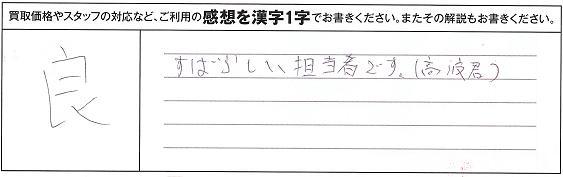 買取価格やスタッフの対応など、ご利用の感想を漢字1字でお書きください。またその解説もお書きください。
良
すばらしい担当者です。(高波君)